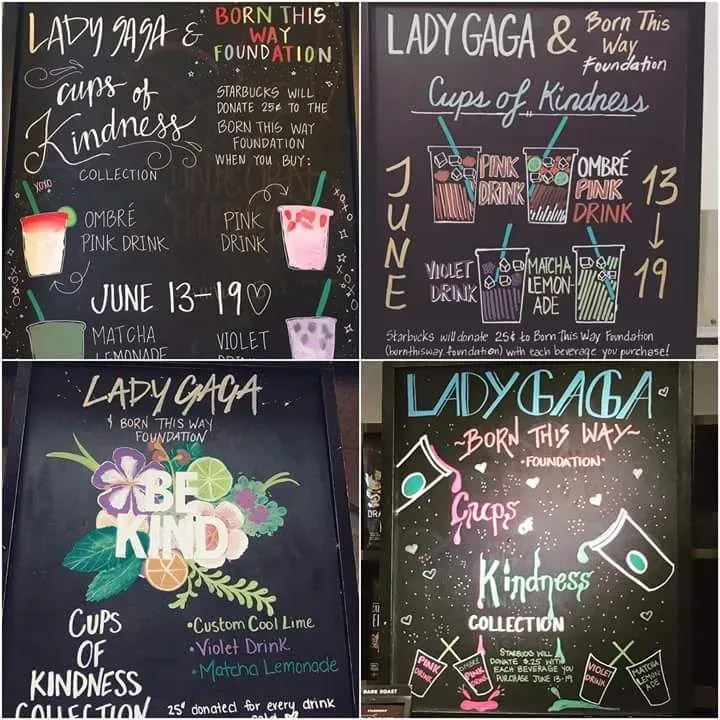 LADY GAGA &
BORN THIS
WAY
FOUNDATION
cups of
Kindness
COLLECTION
STARBUCKS WILL
DONATE 25¢ TO THE
BORN THIS WAY
FOUNDATION
WHEN YOU BUY:
XOXO
OMBRÉ
PINK DRINK
PINK
DRINK
JUNE 13-19♡
MATCHA
LEMONADE
VIOLET
DRINK
LADY GAGA &
Born This
Way
Foundation
Cups of Kindness
JUNE
PINK
DRINK
OMBRÉ
PINK
DRINK
13
↓
19
VIOLET
DRINK
MATCHA
LEMON-
ADE
Starbucks will donate 25¢ to Born This Way Foundation
(bornthisway.foundation) with each beverage you purchase!
LADY GAGA
& BORN THIS WAY
FOUNDATION
BE
KIND
CUPS
OF
KINDNESS
COLLECTION
•Custom Cool Lime
•Violet Drink
•Matcha Lemonade
25¢ donated for every drink
LADY GAGA
~BORN THIS WAY~
•FOUNDATION•
Cups
OF
Kindness
COLLECTION
STARBUCKS WILL
DONATE $.25 WITH
EACH BEVERAGE YOU
PURCHASE JUNE 13-19
PINK
DRINK
OMBRE
PINK
DRINK
VIOLET
DRINK
MATCHA
LEMONADE
DARK ROAST